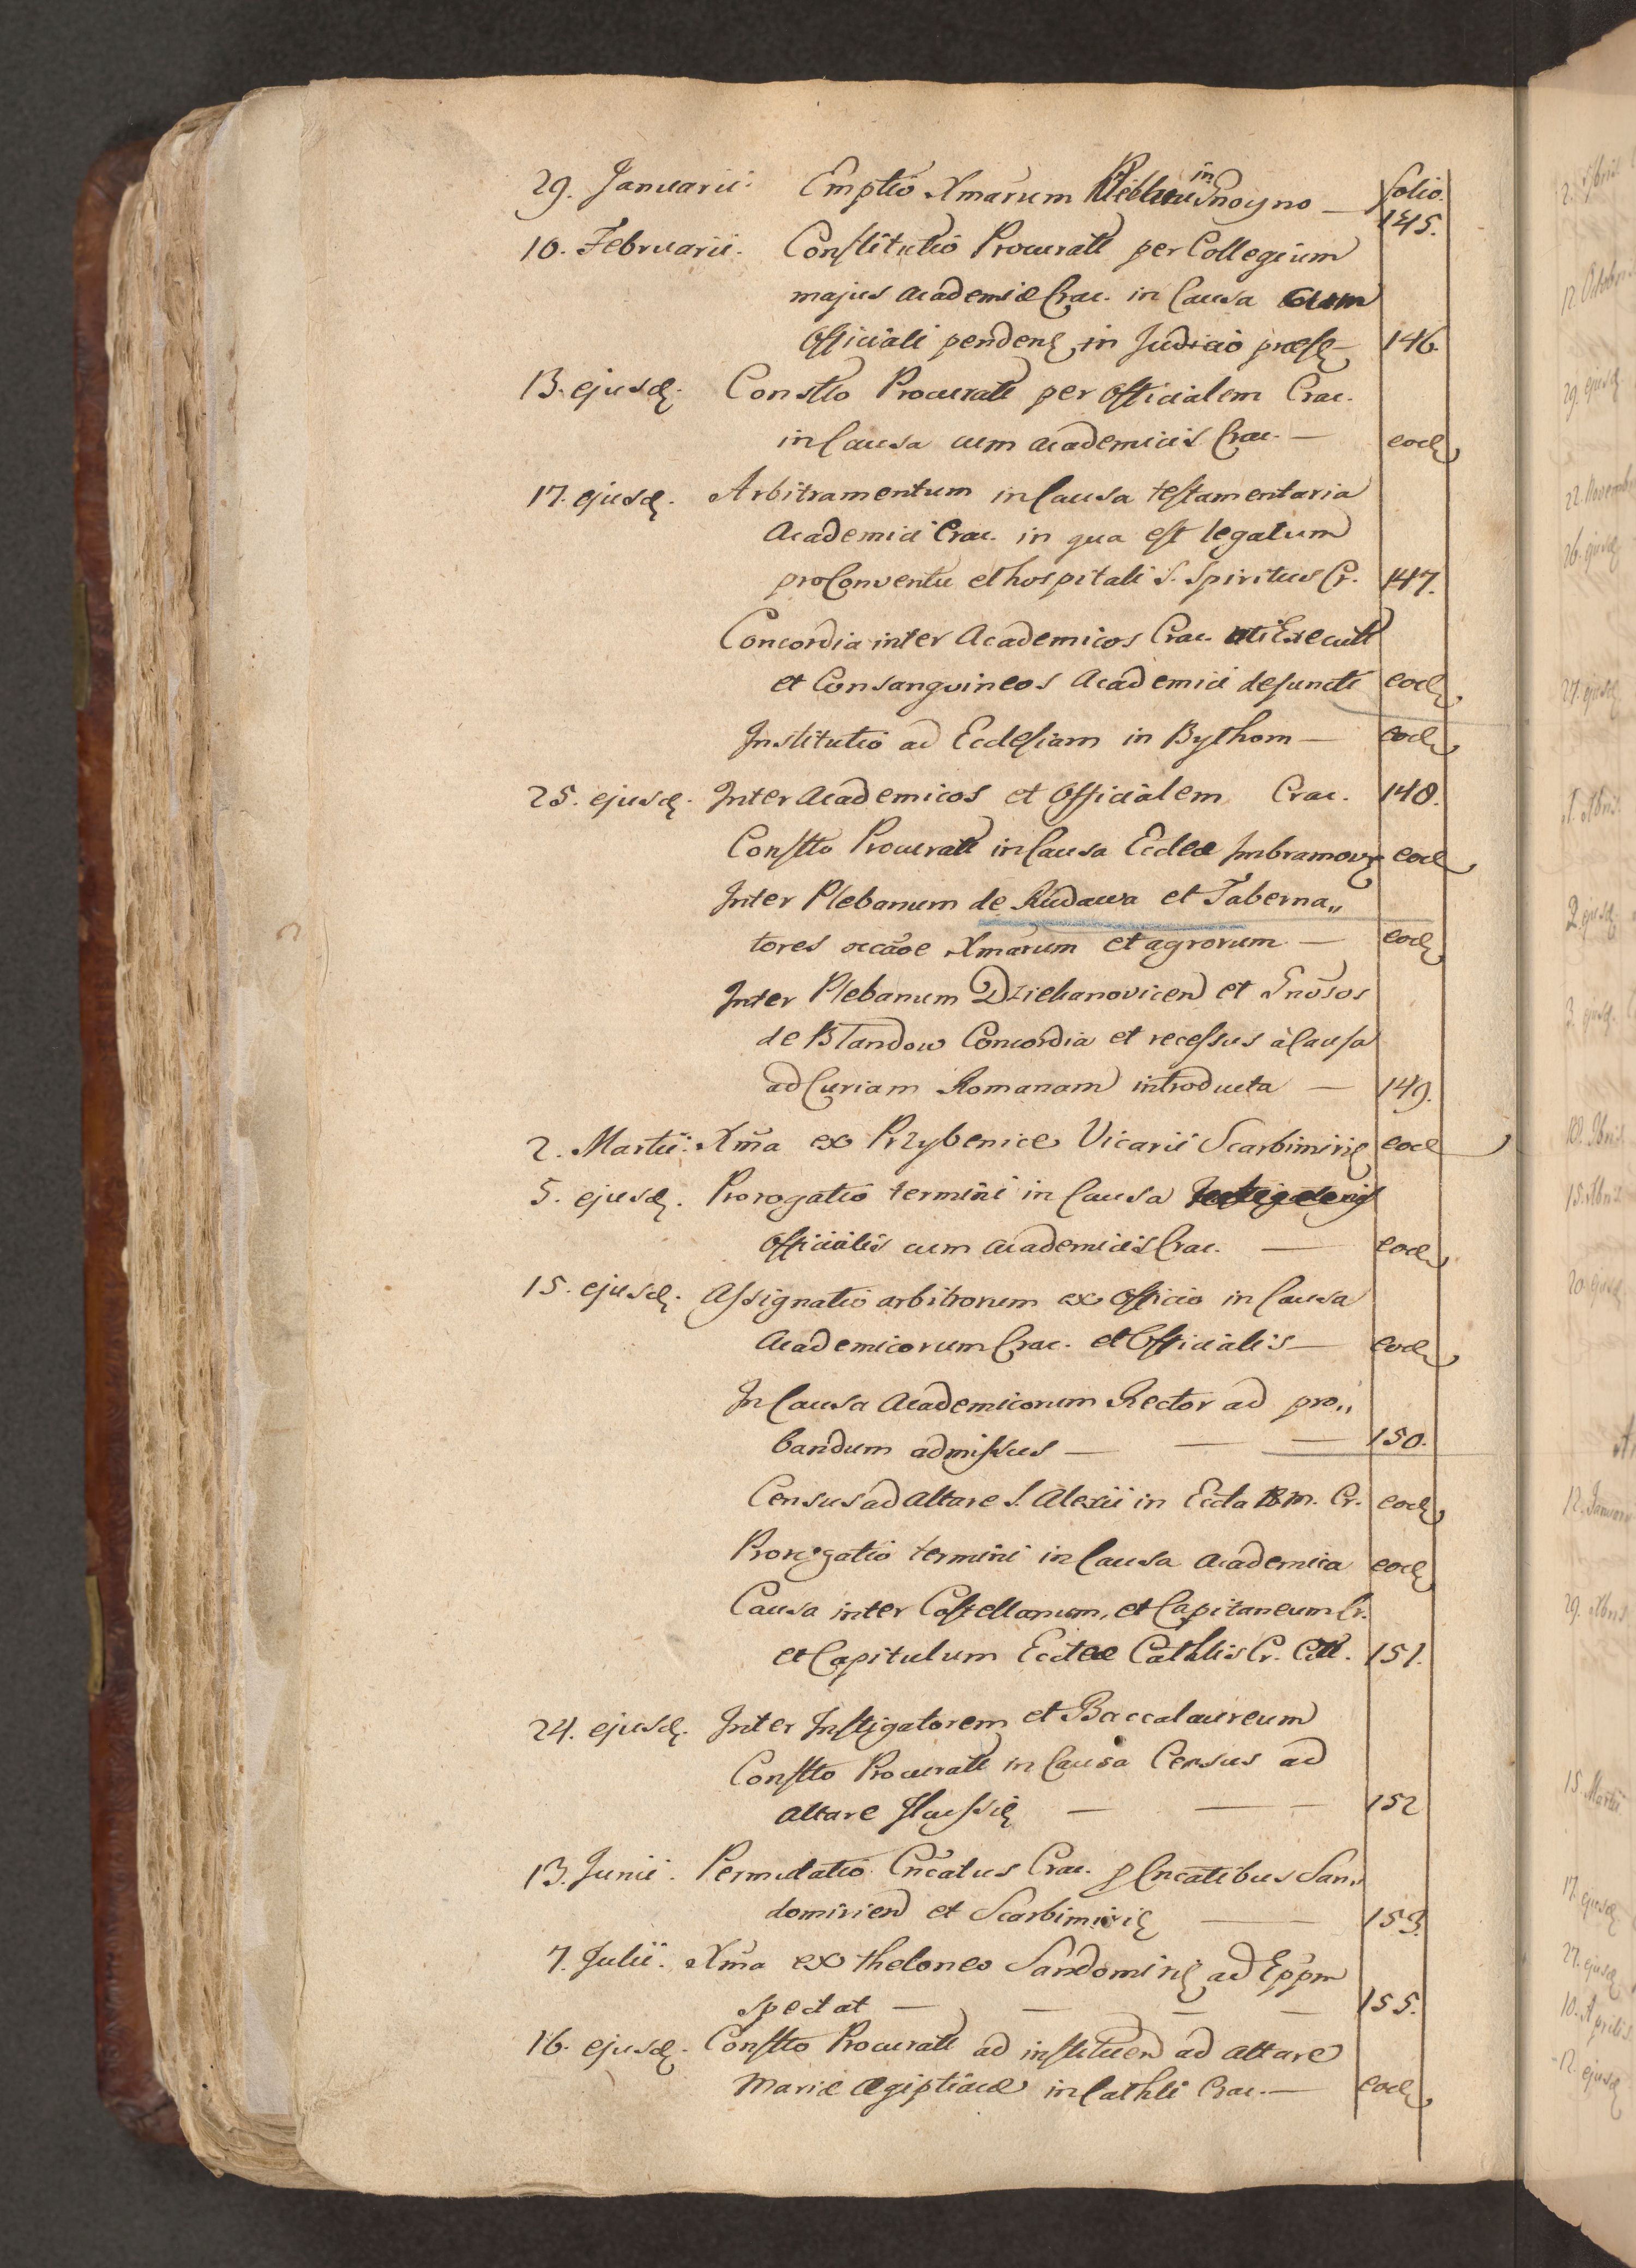 folio.
29. Januarii. Emptio Xmarum Plebano in Gnoyno — 145.
10. Februarii. Constitutio Procurat per Collegium
majus Academiæ Crac. in Causa cum
Officiali penden in Judicio præs — 146.
13. ejusd. Constto Procurat per Officialem Crac.
in Causa cum Academicis Crac. — eod
17. ejusd. Arbitramentum in Causa testamentaria
Academici Crac. in qua est legatum
pro Conventu et hospitali S. Spiritus Cr. 147.
Concordia inter Academicos Crac. uti Execut
et Consanguineos Academici defuncti eod
Institutio ad Ecclesiam in Bythom — eod
25. ejusd. Inter Academicos et Officialem Crac. 148.
Constto Procurat in Causa Eccleæ Imbramov eod
Inter Plebanum de Rudawa et Taberna„
tores occaõe Xmarum et agrorum — eod
Inter Plebanum Dziekanovicen et Gnõsos
de Blandow Concordia et recessus à Causa
ad Curiam Romanam introducta — 149.
2. Martii. Xma ex Przybenice Vicarii Scarbimirie eod
5. ejusd. Prorogatio termini in Causa
Officialis cum Academicis Crac. — eod
15. ejusd. Assignatio arbitrorum ex Officio in Causa
Academicorum Crac. et Officialis — eod
In Causa Academicorum Rector ad pro„
bandum admissus — — — 150.
Census ad altare S. Alexii in Eccla B.M. Cr. eod
Prorogatio termini in Causa Academica eod
Causa inter Castellanum, et Capitaneum Cr.
et Capitulum Eccleæ Cathlis Cr. Citt. 151.
24. ejusd. Inter Instigatorem et Baccalaureum
Constto Procurat in Causa Census ad
altare — — 152
13. Junii. Permutatio Cñcatus Crac. p Cncatibus San„
domirien et Scarbimirie — 153.
7. Julii. Xma ex theloneo Sandomirie ad Eppm
spectat — — — — 155.
16. ejusd. Constto Procurat ad instituen ad altare
Mariæ Ægiptiacæ in Cathli Crac. — eod